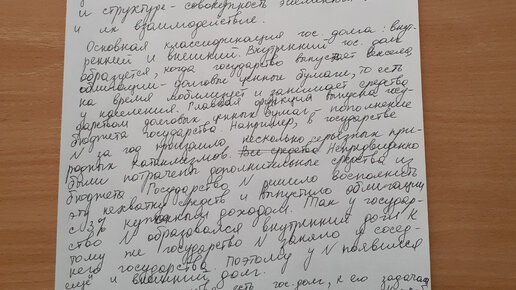 и структуре - совокупность элементов
и их взаимодействие.
Основная классификация гос. долга: внут-
ренний и внешний. Внутренний гос. долг
образуется, когда государство выпускает векселя,
облигации - долговые ценные бумаги, то есть
на время мобилизует и занимает средства
у населения. Главная функция выпуска госу-
дарством долговых ценных бумаг - пополнение
бюджета государства. Например, в государстве
N за год произошло несколько серьезных при-
родных катаклизмов. Все средства Непредвиденно
были потрачены дополнительные средства из
бюджета. Государство N решило восполнить
эту нехватку средств и выпустило облигации
с 3% купонным доходом. Так у государ-
ство N образовался внутренний долг. К
тому же государство N заняло у сосед-
него государства. Поэтому у N появился
ещё и внешний долг.
есть гос. долг, к его задачам